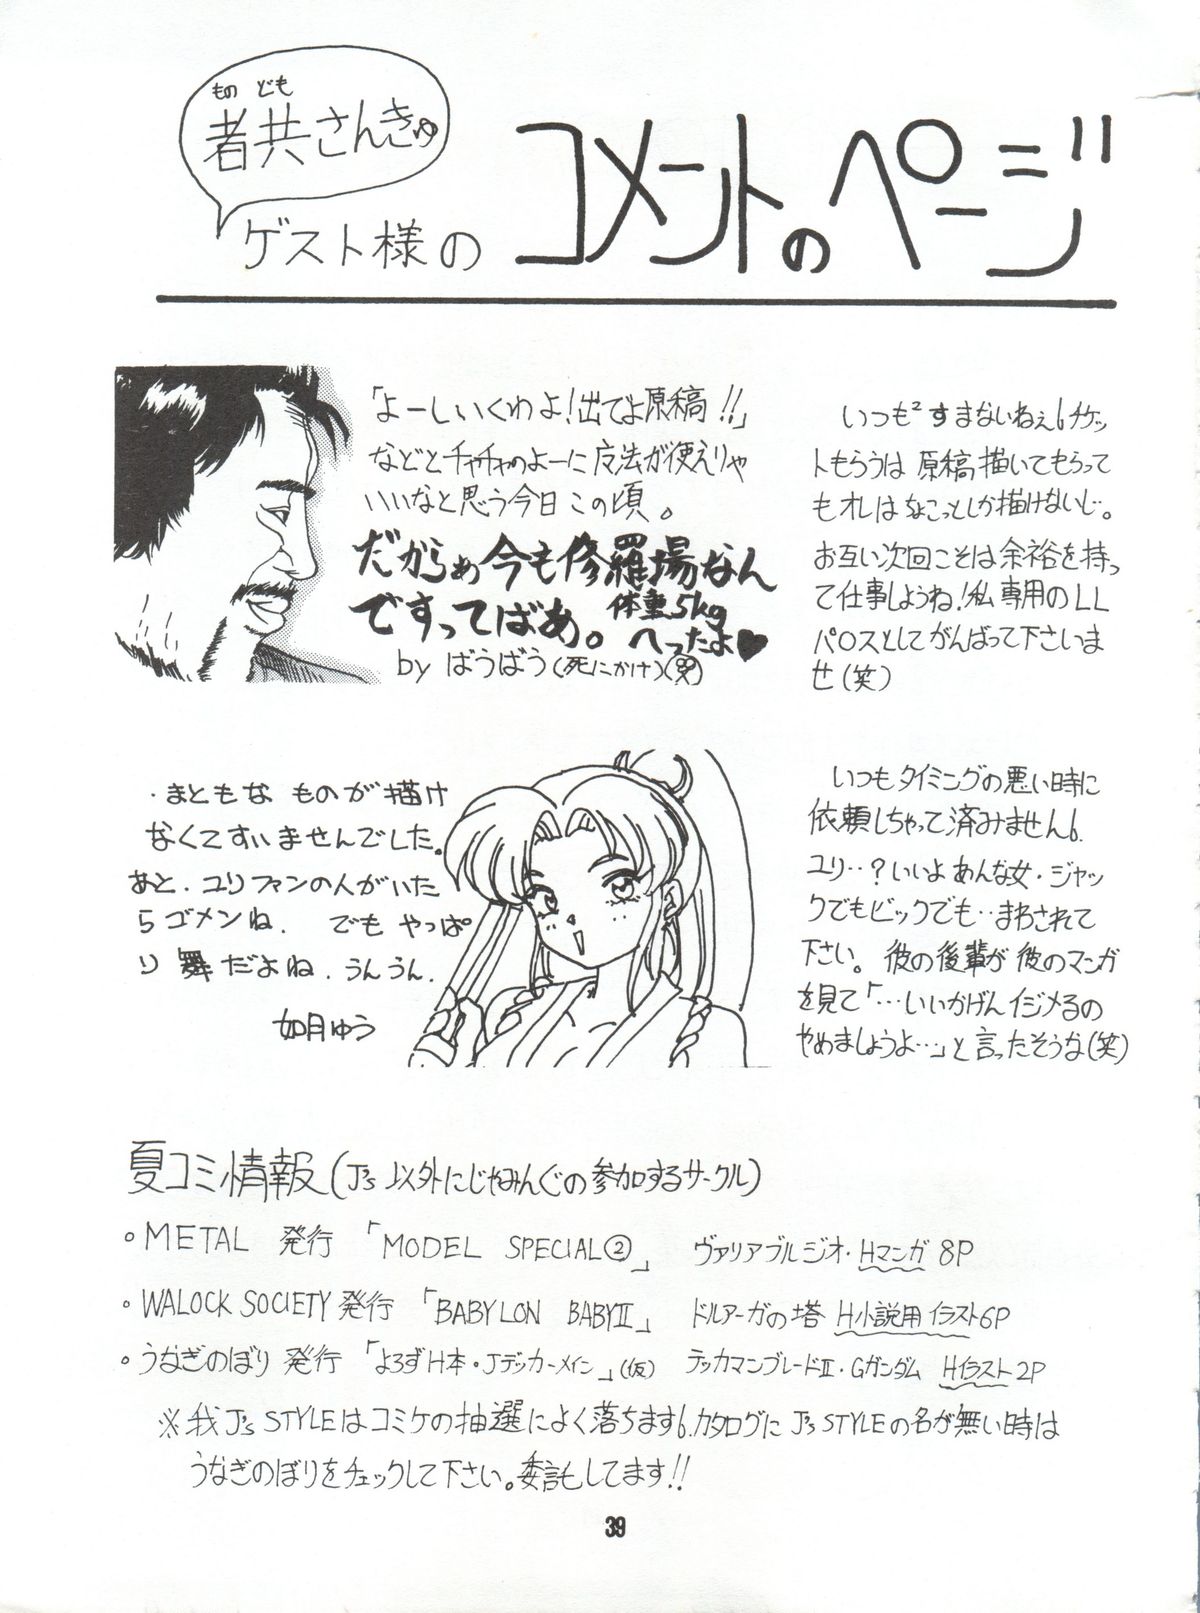 ものども
者共さんきゅ
ゲスト様の
コメントのページ
「よーしいくわよ!出てよ原稿!!」
などとチャチャのよーに魔法が使えりゃ
いいなと思う今日この頃。
だからぁ今も修羅場なん
ですってばあ。
体重5kg
へったよ♥
by ばうばう(死にかけ)(笑)
いつも²すまないねぇ。チケッ
トもらうは原稿描いてもらって
もオレはちょこっとしか描けないし。
お互い次回こそは余裕を持っ
て仕事しようね!私専用のLL
パロスとしてがんばって下さいま
せ(笑)
・まともなものが描け
なくてすいませんでした。
あと、ユリファンの人がいた
らゴメンね. でもやっぱ
り舞だよね.うんうん.
如月ゆう
いつもタイミングの悪い時に
依頼しちゃって済みません。
ユリ‥?いいよあんな女・ジャッ
クでもビックでも‥まわされて
下さい。彼の後輩が彼のマンガ
を見て「…いいかげんイジメるの
やめましょうよ…」と言ったそうな(笑)
夏コミ情報(J's以外にじゃみんぐの参加するサークル)
○METAL 発行 「MODEL SPECIAL②」 ヴァリアブルジオ・Hマンガ 8P
○WALOCK SOCIETY発行 「BABYLON BABYⅡ」 ドルアーガの塔 H小説用イラスト6P
○うなぎのぼり 発行 「よろずH本・Jデッカーメイン」(仮) テッカマンブレードⅡ・Gガンダム Hイラスト2P
※我J's STYLEはコミケの抽選によく落ちます。カタログにJ's STYLEの名が無い時は
うなぎのぼりをチェックして下さい。委託してます!!
39